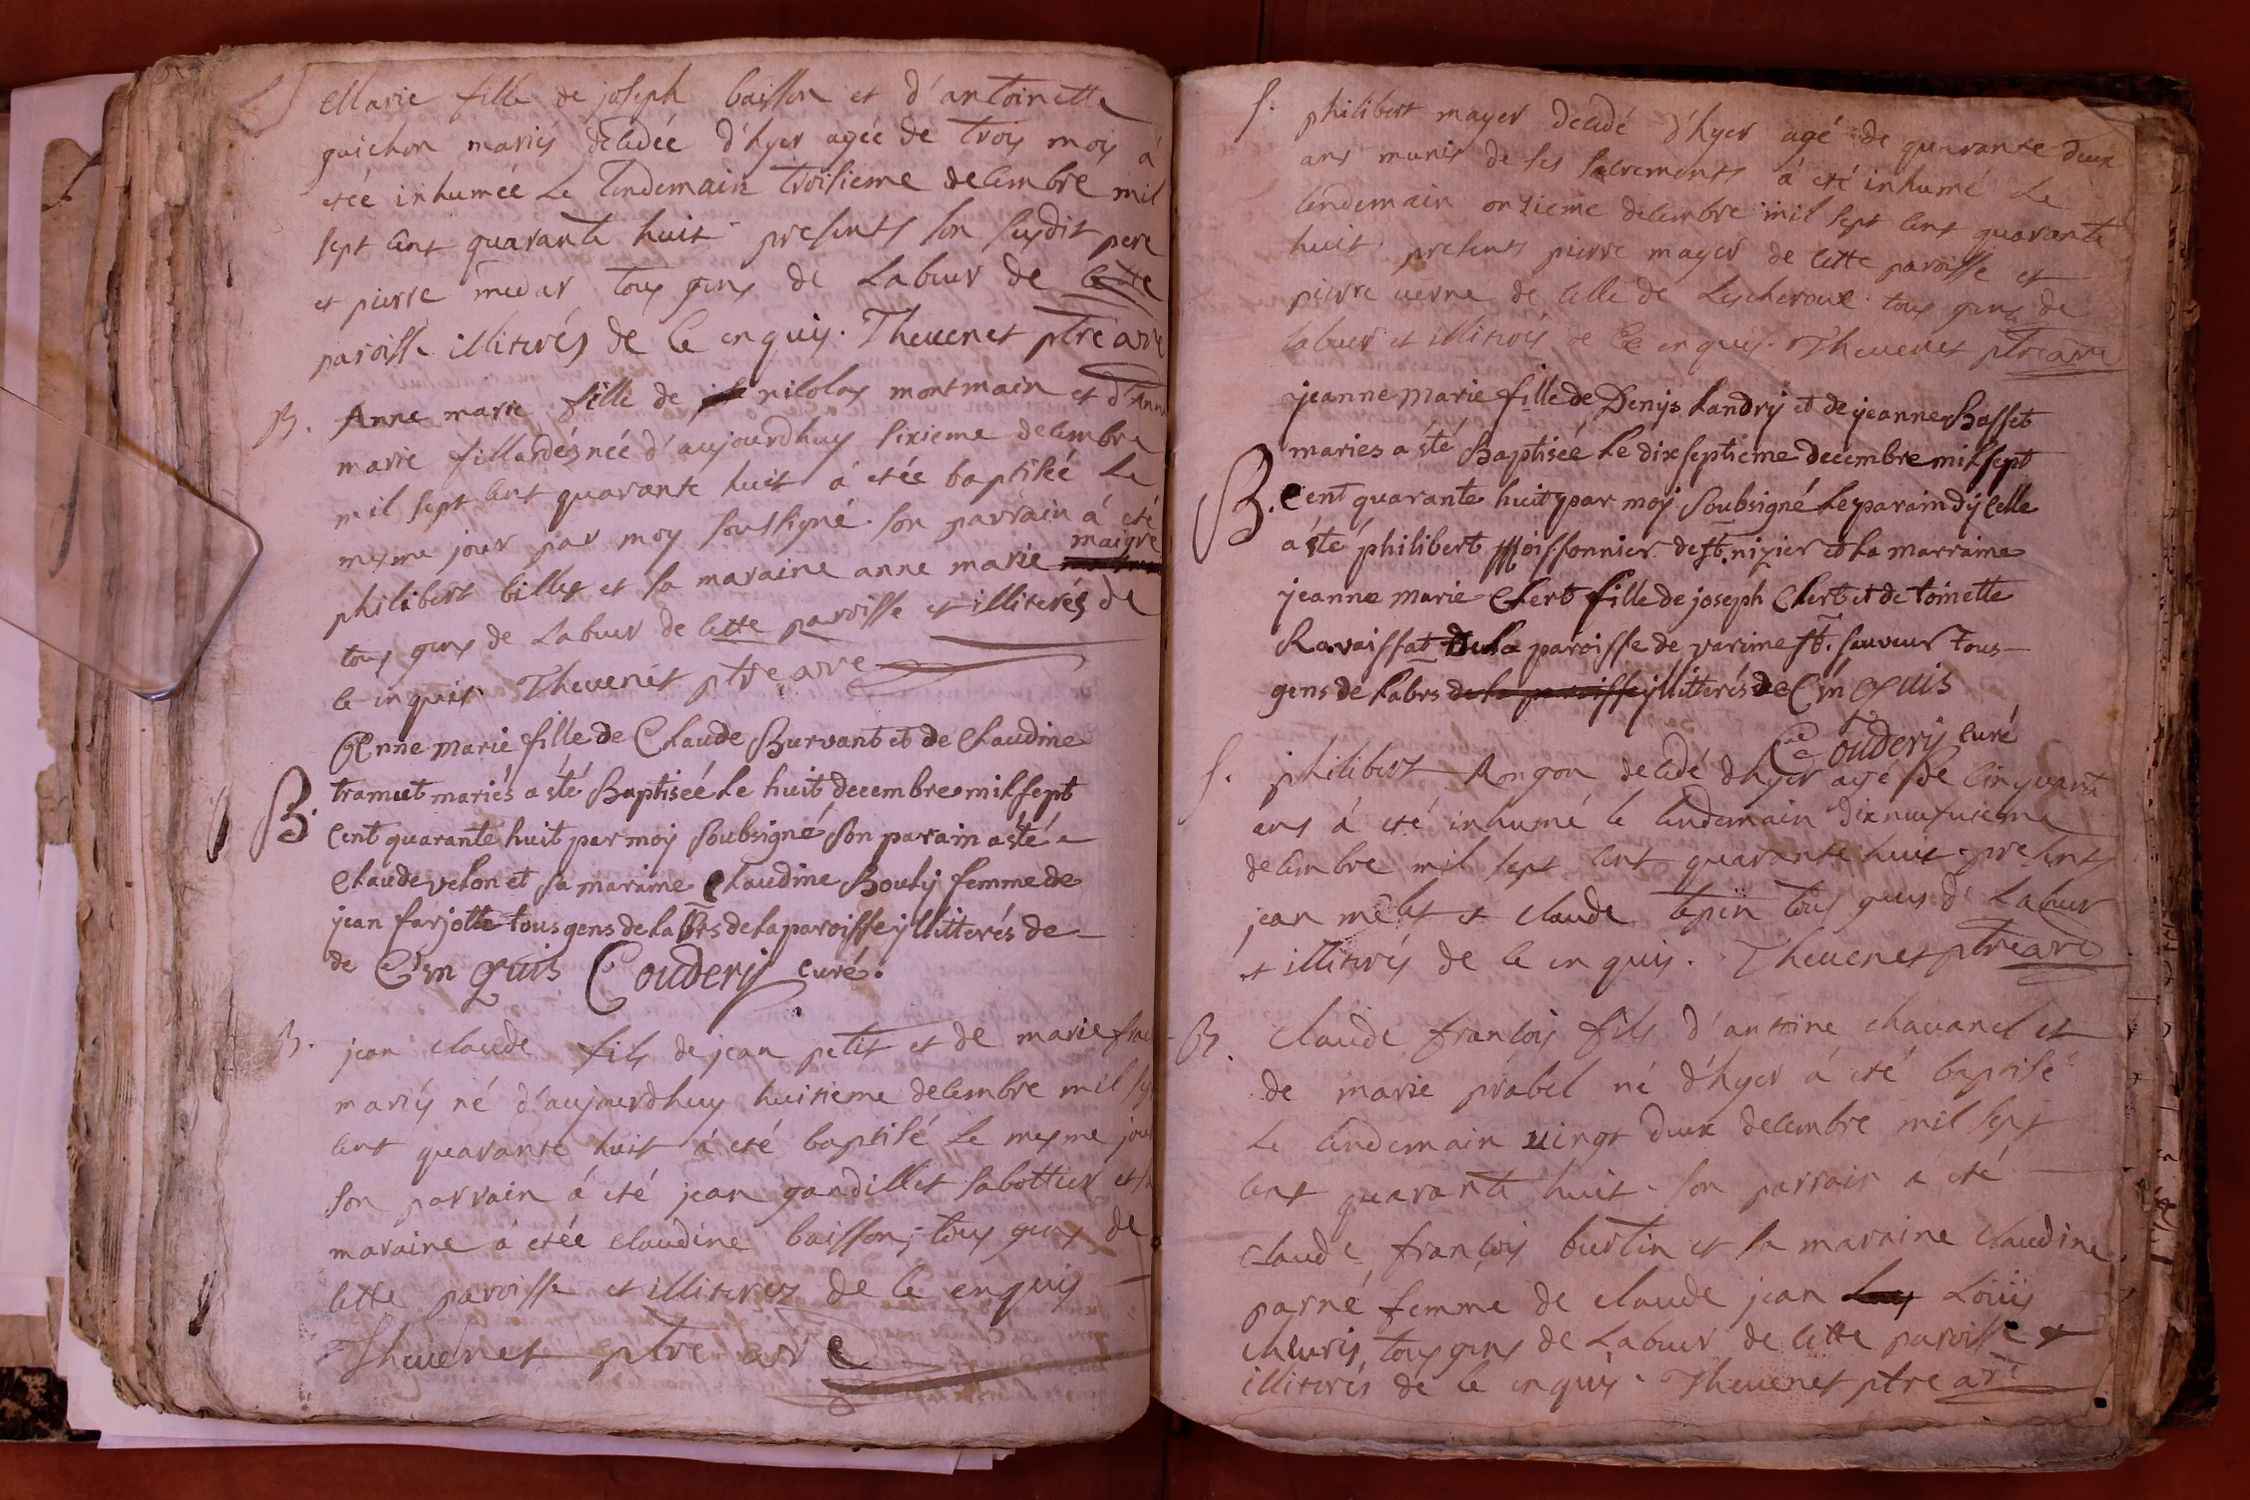 S
Marie fille de joseph baisson et d'antoinette
guichon mariés decedée d'hyer agée de trois mois á
etée inhumée Le lendemain troisieme decembre mil
sept cent quarante huit presents son susdit pere
et pierre medar tous gens de Labeur de cette
paroisse illiterés de Ce enquis. Thevenet ptre arre
B. Anne marie fille de nicolas montmain et d'Anne
marie fillardés née d'aujourdhuy sixieme decembre
mil sept cent quarante huit á etée baptisée Le
mesme jour par moy soussigné son parrain á eté
maigre
philibert billet et sa maraine anne marie
tous gens de Labeur de cette paroisse et illiterés de
ce enquis Thevenet ptre arre
Anne marie fille de Claude Burvant et de Claudine
B. tramut mariés a été Baptisée Le huit decembre mil sept
Cent quarante huit par moy soubsigné son parain a été
Claude velon et sa maraine Claudine Bouly femme de
jean farjotte tous gens de Labrs de La paroisse yllitterés de
de C'en Quis Couderij Curé.
B. jean claude fils de jean petit et de marie
mariés né d'aujourdhuy huitieme decembre mil sept
cent quarante huit á eté baptisé Le mesme jour
son parrain á eté jean gandillet sabotteur et sa
maraine á etée claudine baisson; tous gens de
cette paroisse et illiterez de Ce enquis
Thevenet ptre arre
S. philibert mayer decedé d'hyer agé de quarante deux
ans munis de ses sacrements á eté inhumé Le
lendemain onzieme decembre mil sept cent quarante
huit presents pierre mayer de cette paroisse et
pierre verne de celle de Lescheroux tous gens de
labeur et illiterés de Ce enquis. Thevenet ptre arre
jeanne marie fille de Denys Landry et de jeanne Basset
maries a été Baptisée Le dix septieme decembre mil sept
B. Cent quarante huit par moy soubsigné Le parain d'ycelle
á été philibert Moissonnier de st. nizier et La marraine
jeanne marie Chert fille de joseph Chert et de toinette
Ravaissat De La paroisse de varime st. sauveur tous
gens de Labrs de la paroisse yllitterés de C'en Quis
Couderij Curé
S. philibert Rongon decedé d'hyer agé de cinquante
ans á eté inhumé le lendemain dixneufvieme
decembre mil sept cent quarante huit presents
jean melet et claude tepin tous gens de Labeur
et illiterés de ce enquis. Thevenet ptre arre
B. Claude françois fils d'antoine chavanel et
de marie prabel né d'hyer á eté baptisé
Le lendemain vingt deux decembre mil sept
cent quarante huit son parrain a eté
claude françois burtin et sa maraine claudine
parné femme de claude jean Loüis
cheuris, tous gens de Labeur de cette paroisse et
illiterés de Ce enquis. Thevenet ptre arre